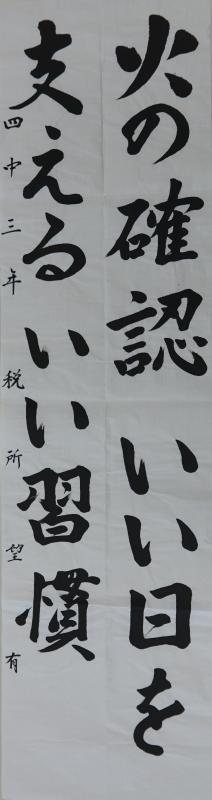 火の確認いい日を
支えるいい習慣
四中三年税所望有